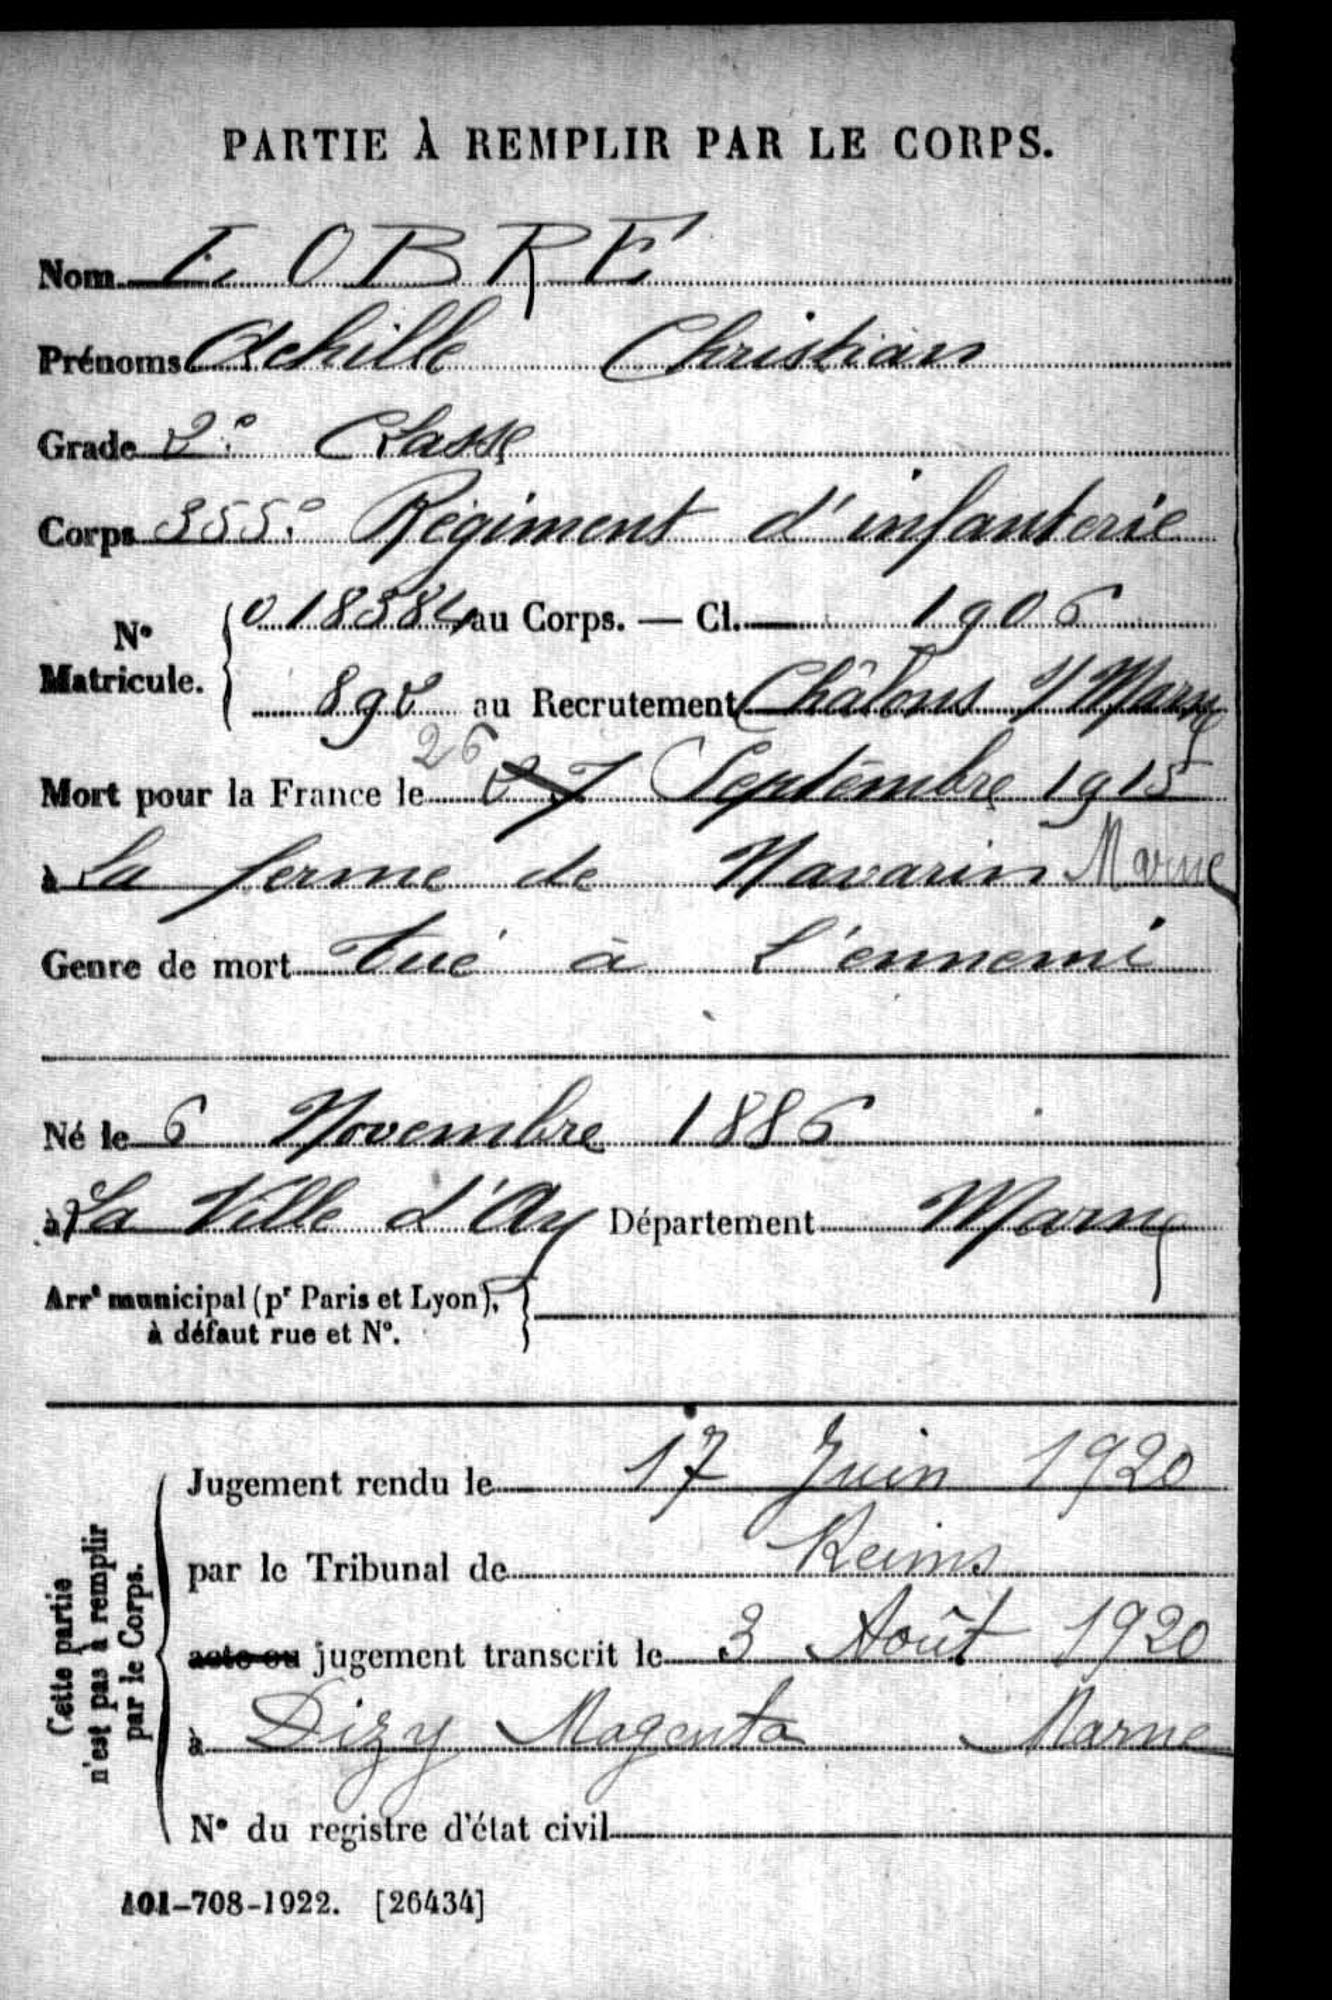 PARTIE À REMPLIR PAR LE CORPS.
Nom LOBRE
Prénoms Achille Christian
Grade 2e Classe
Corps 355e Régiment d'infanterie
N° Matricule. { 018384 au Corps. — Cl. 1906
892 au Recrutement Châlons s/ Marne
26
Mort pour la France le 27 Septembre 1915
à La ferme de Navarin Marne
Genre de mort tué à l'ennemi
Né le 6 Novembre 1886
à La Ville d'Ay Département Marne
Arrt municipal (pr Paris et Lyon),
à défaut rue et N°.
Cette partie n'est pas à remplir par le Corps.
Jugement rendu le 17 Juin 1920
par le Tribunal de Reims
acte ou jugement transcrit le 3 Août 1920
à Dizy Magenta Marne
N° du registre d'état civil
101-708-1922. [26434]